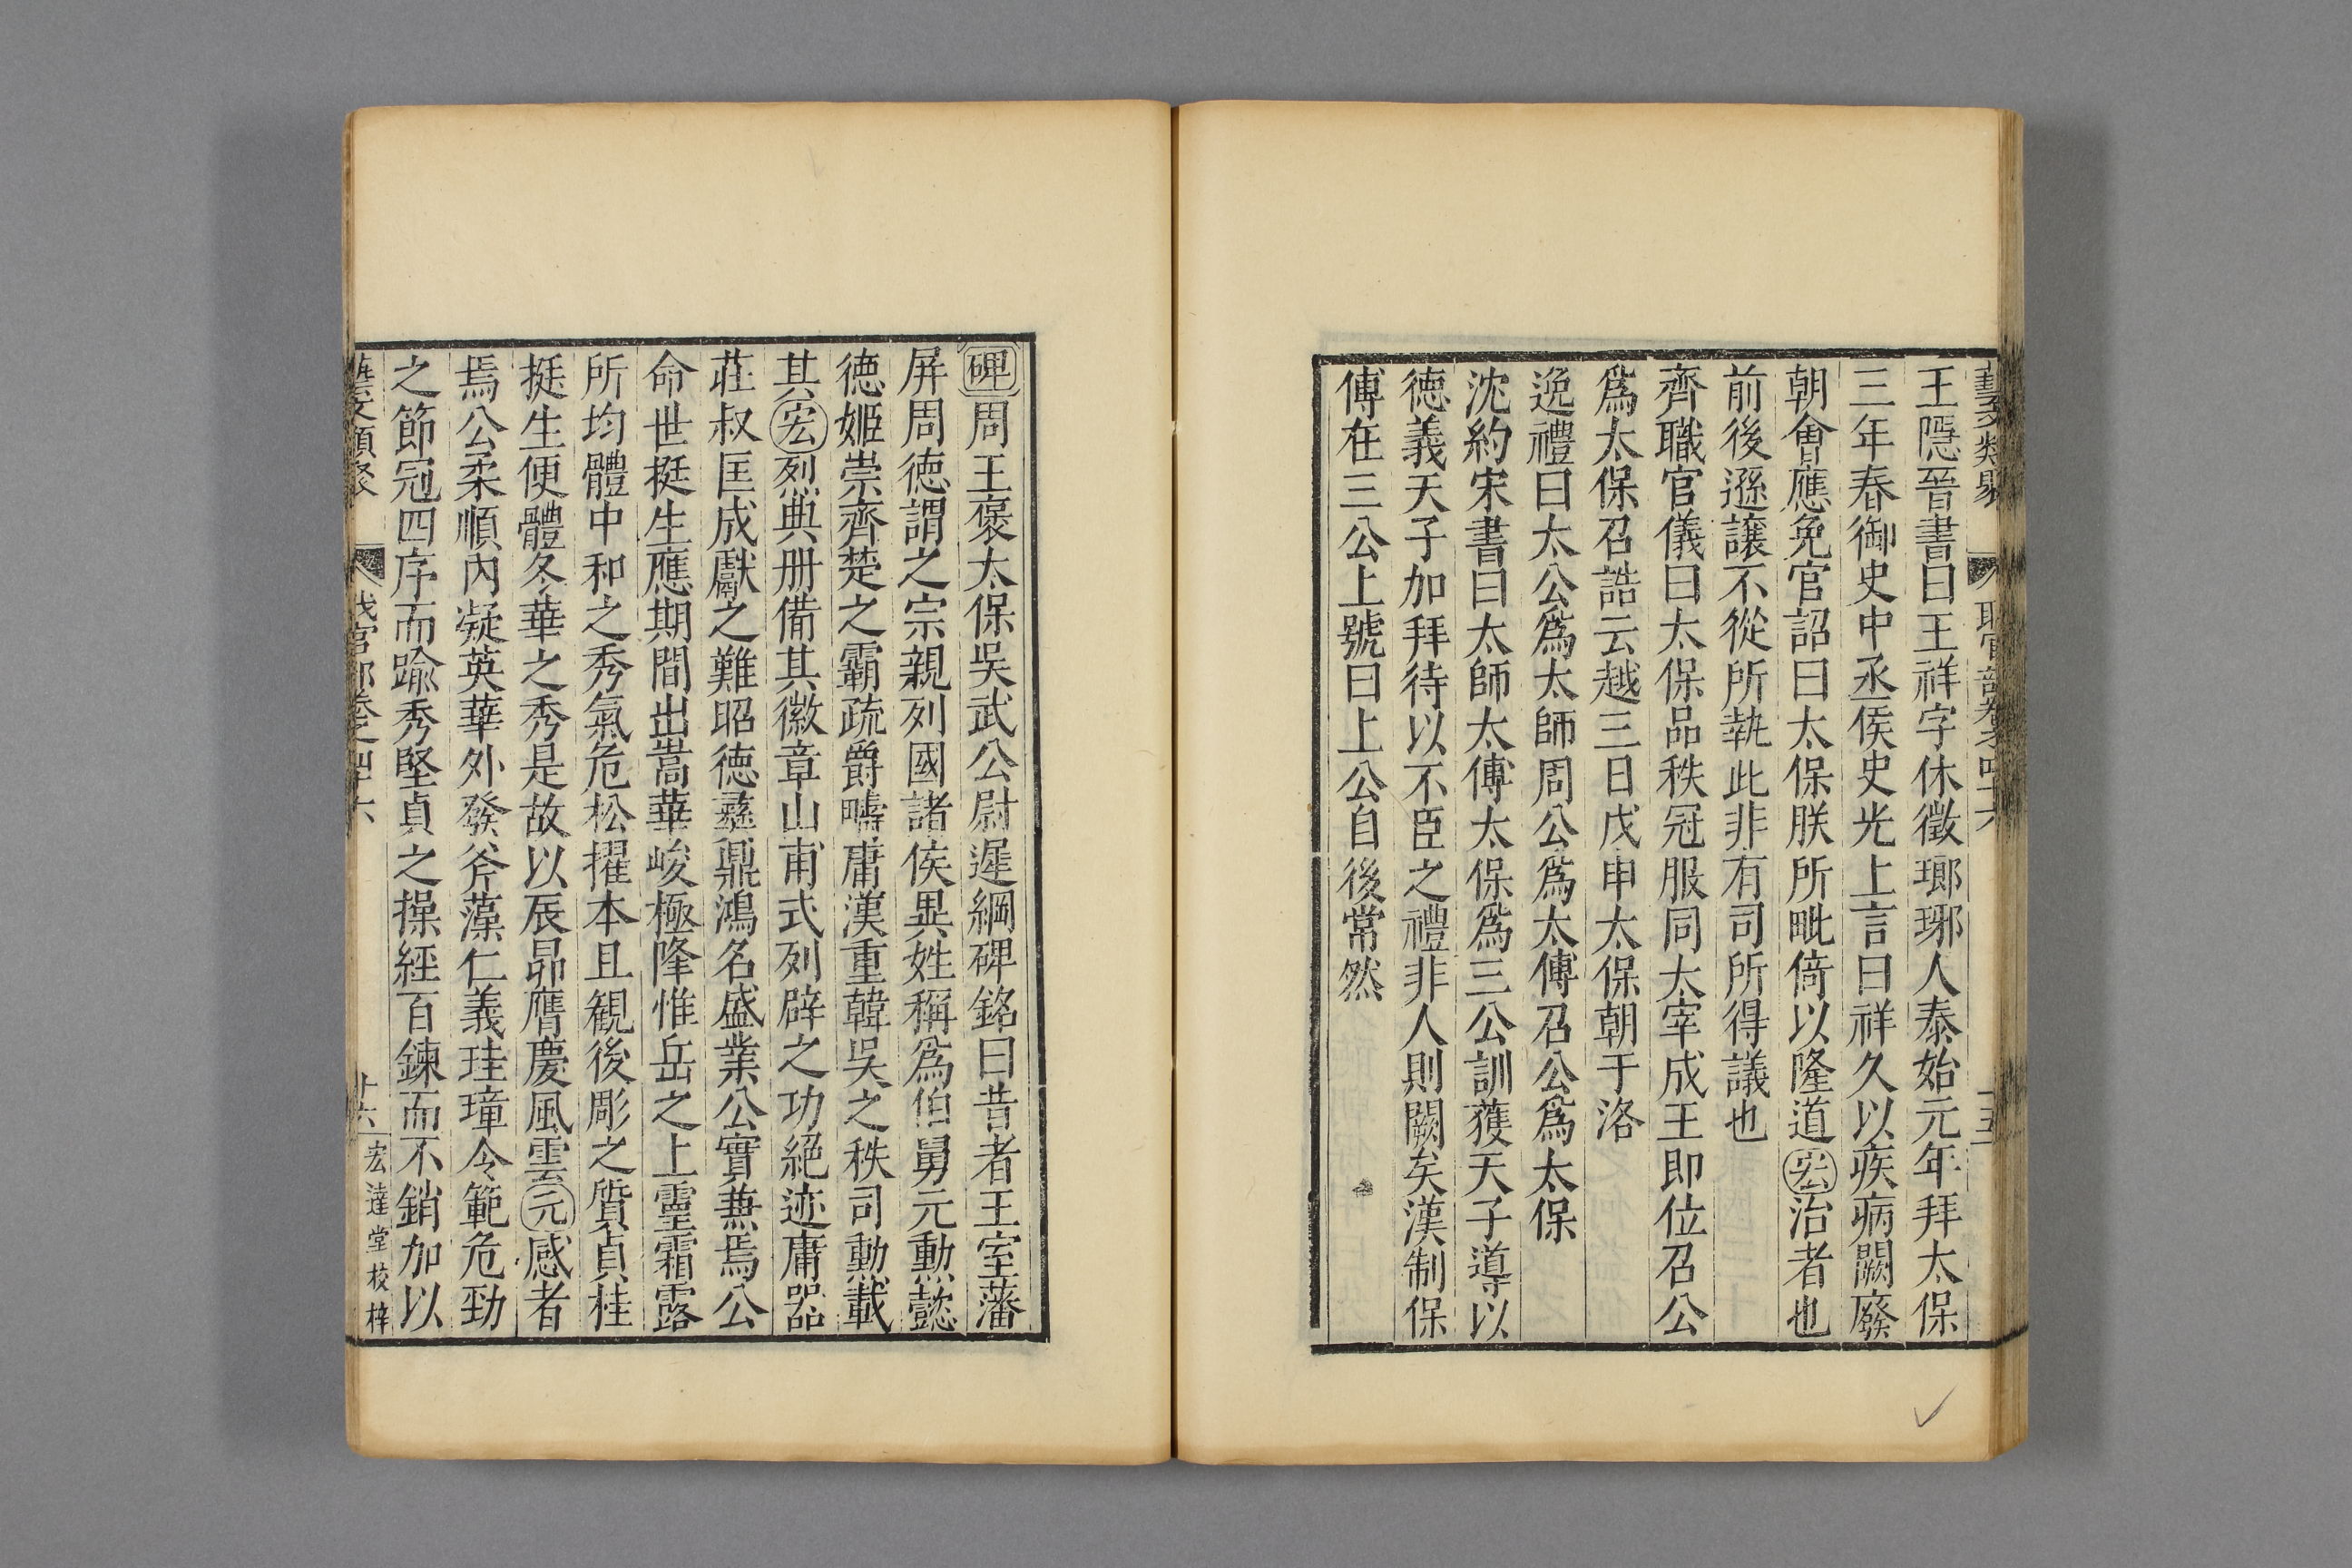 王隱晉書曰王祥字休徵瑯琊人泰始元年拜太保
三年春御史中丞侯史光上言曰祥久以疾病闕廢
朝會應免官詔曰太保朕所毗倚以隆道宏治者也
前後遜讓不從所執此非有司所得議也
齊職官儀曰太保品秩冠服同太宰成王即位召公
爲太保召誥云越三日戊申太保朝于洛
逸禮曰太公爲太師周公爲太傅召公爲太保
沈約宋書曰太師太傅太保爲三公訓護天子導以
德義天子加拜待以不臣之禮非人則闕矣漢制保
傅在三公上號曰上公自後常然
碑周王褒太保吳武公尉遲綱碑銘曰昔者王室藩
屏周德謂之宗親列國諸侯異姓稱爲伯舅元勳懿
德姬崇齊楚之霸疏爵疇庸漢重韓吳之秩司勳載
其宏烈典册備其徽章山甫式列辟之功絕迹庸器
莊叔匡成獻之難昭德彝鼎鴻名盛業公實兼焉公
命世挺生應期間出嵩華峻極降惟岳之上靈霜露
所均體中和之秀氣危松擢本且觀後彫之質貞桂
挺生便體冬華之秀是故以辰昴膺慶風雲元感者
焉公柔順內凝英華外發斧藻仁義珪璋令範危勁
之節冠四序而踰秀堅貞之操經百鍊而不銷加以
藝文類聚 職官部卷之四十六 十六 宏達堂校梓